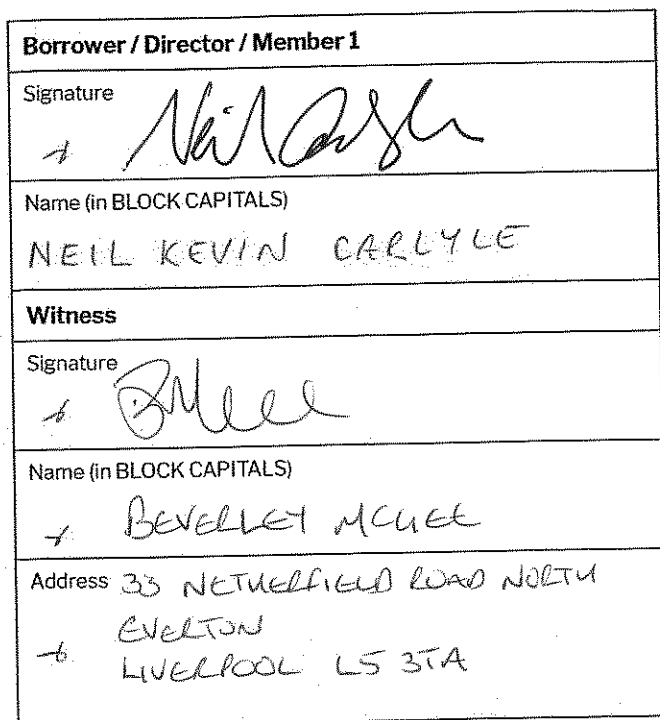 Borrower / Director / Member 1
Signature
Neil
Name (in BLOCK CAPITALS)
NEIL KEVIN CARLYLE
Witness
Signature
Name (in BLOCK CAPITALS)
BEVERLEY MCGEE
Address 33 NETHERFIELD ROAD NORTH
EVERTON
LIVERPOOL L5 3TA